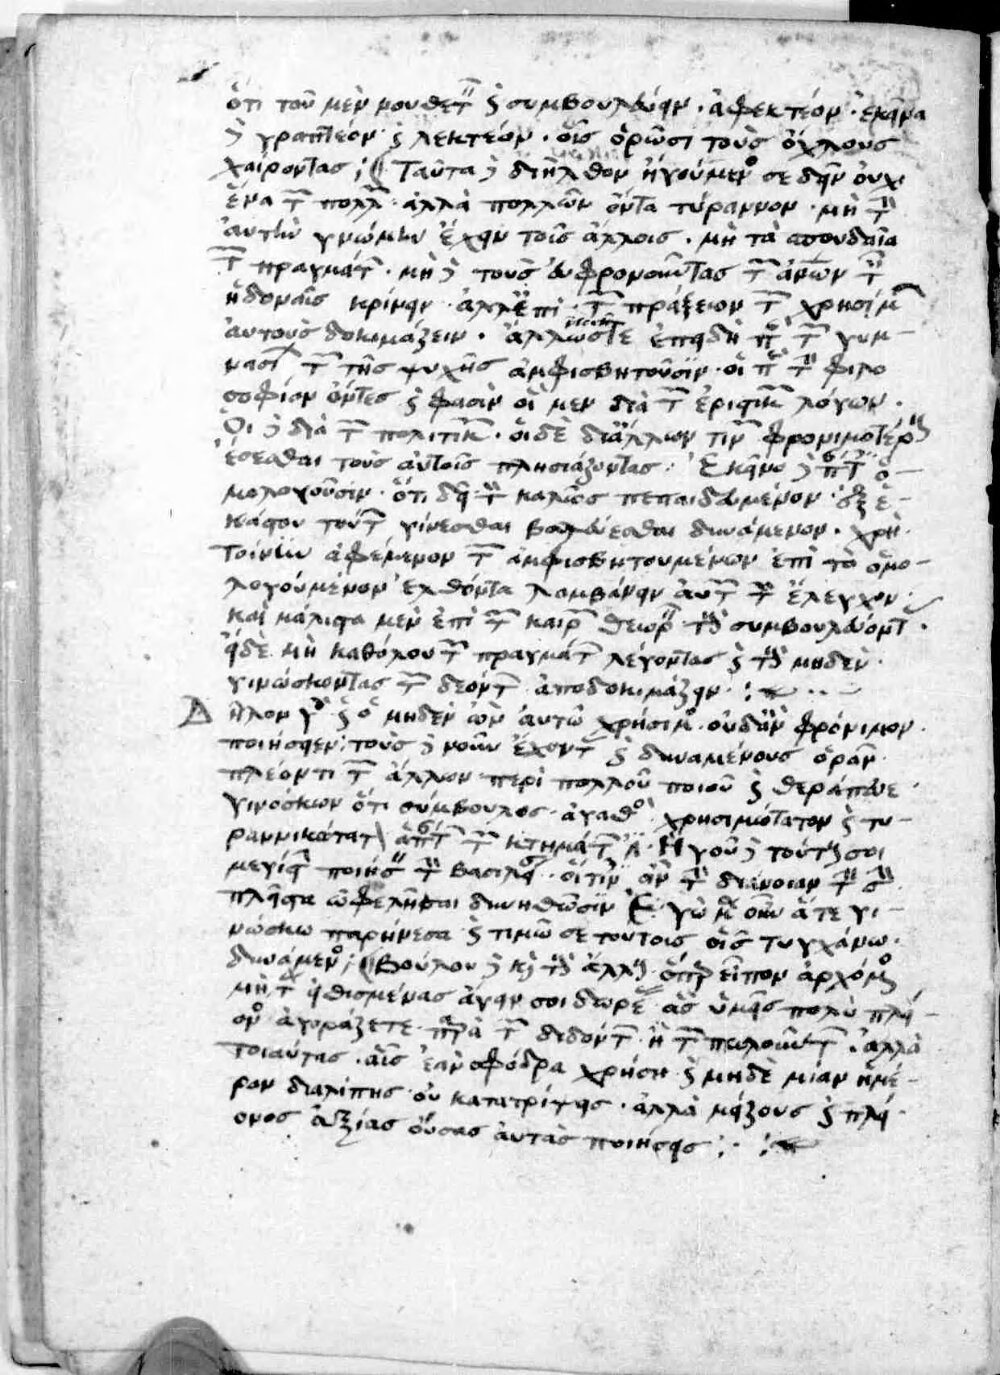 ὅτι τοῦ μὲν νουθετεῖν καὶ συμβουλεύειν · ἀφεκτέον · ἐκεῖνα
δὲ γραπτέον καὶ λεκτέον · οἷς ὁρῶσι τοὺς ὄχλους
χαίροντας : Ταῦτα δὲ διῆλθον ἡγούμενος σε δεῖν οὐχ
ἕνα τῶν πολλῶν · ἀλλὰ πολλῶν ὄντα τύραννον · μὴ τὴν
αὐτὴν γνώμην ἔχειν τοῖς ἄλλοις · μὴ τὰ σπουδαῖα
τῶν πραγμάτων · μὴ δὲ τοὺς εὖ φρονοῦντας τῶν ἀνων ταῖς
ἡδοναῖς κρίνειν · ἀλλ' ἐπὶ τῶν πράξεων τῶν χρησίμων
αὐτοὺς δοκιμάζειν · ἄλλωστε ἐπειδὴ περὶ τῶν γυμ-
νασίων τῶν τῆς ψυχῆς ἀμφισβητοῦσιν · οἱ περὶ τὴν φιλο
σοφίαν ὄντες καὶ φασὶν οἱ μὲν διὰ τῶν ἐριστικῶν λόγων ·
Οἱ δὲ διὰ τῶν πολιτικῶν · οἱ δὲ δι' ἄλλων τινῶν φρονιμωτέρους
ἔσεσθαι τοὺς αὐτοῖς πλησιάζοντας : Ἐκεῖνο δὲ πάντες ὁ-
μολογοῦσιν · ὅτι δεῖ τὸν καλῶς πεπαιδευμένον · ἐξ ἑ-
κάστου τούτων γίνεσθαι βουλεύεσθαι δυνάμενον · χρὴ
τοίνυν ἀφέμενον τῶν ἀμφισβητουμένων ἐπὶ τὸ ὁμο-
λογούμενον ἐλθόντα λαμβάνειν αὐτῶν τὸν ἔλεγχον ·
καὶ μάλιστα μὲν ἐπὶ τῶν καιρῶν θεωρεῖν τοὺς συμβουλεύοντας ·
εἰ δὲ μὴ καθόλου τῶν πραγμάτων λέγοντας καὶ τοὺς μηδὲν
γινώσκοντας τῶν δεόντων ἀποδοκιμάζειν · :
Δῆλον γὰρ ὡς ὁ μηδὲν ὢν αὐτῷ χρήσιμος · οὐδ' ἂν φρόνιμον
ποιήσειεν : τοὺς δὲ νοῦν ἔχοντας καὶ δυναμένους ὁρᾶν
πλέον τι τῶν ἄλλων περὶ πολλοῦ ποιοῦ καὶ θεράπευε ·
γινώσκων ὅτι σύμβουλος ἀγαθὸς χρησιμώτατον καὶ τυ-
ραννικώτατον ἁπάντων τῶν κτημάτων · Ἡγοῦ δὲ τούτους σοι
μεγίστην ποιήσειν τὴν βασιλείαν · οἵτινες ἂν τὴν διάνοιαν τὴν σὴν
πλεῖστα ὠφελῆσαι δυνηθῶσιν Ἐγὼ μὲν οὖν ἅ τε γι-
νώσκω παρῄνεσα καὶ τιμῶ σε τούτοις οἷς τυγχάνω ·
δυνάμενος : Βούλου δὲ καὶ τοὺς ἄλλους · ὅπερ εἶπον ἀρχόμενος
μὴ τὰς εἰθισμένας ἄγειν σοι δωρεὰς ἃς ὑμεῖς πολὺ πλεί-
ονος ἀγοράζετε παρὰ τῶν διδόντων ἢ τῶν πωλούντων · ἀλλὰ
τοιαύτας · αἷς ἐὰν σφόδρα χρήση καὶ μηδὲ μίαν ἡμέ-
ραν διαλίπης οὐ κατατρίψεις · ἀλλὰ μείζους καὶ πλεί
ονος ἀξίας οὔσας αὐτὰς ποιήσεις : · :